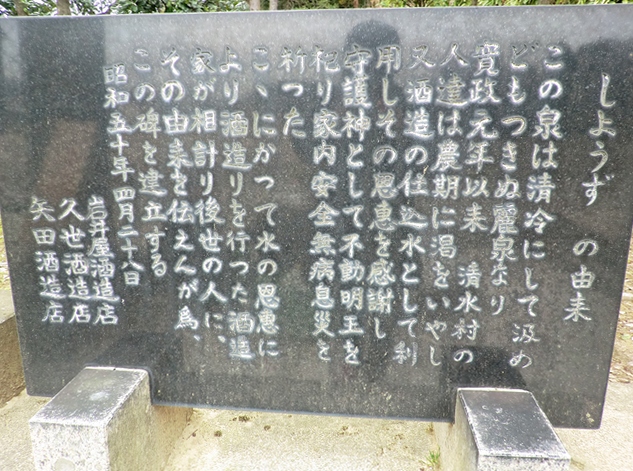 しようず の由来
この泉は清冷にして汲め
どもつきぬ靈泉なり
寛政元年以来 清水村の
人達は農期に渇をいやし
又酒造の仕込水として利
用しその恩恵を感謝し
守護神として不動明王を
祀り家内安全無病息災を
祈った
こゝにかつて水の恩恵に
より酒造りを行った酒造
家が相計り後世の人に、
その由来を伝えんが為、
この碑を建立する
昭和五十年四月二十八日
岩井屋酒造店
久世酒造店
矢田酒造店